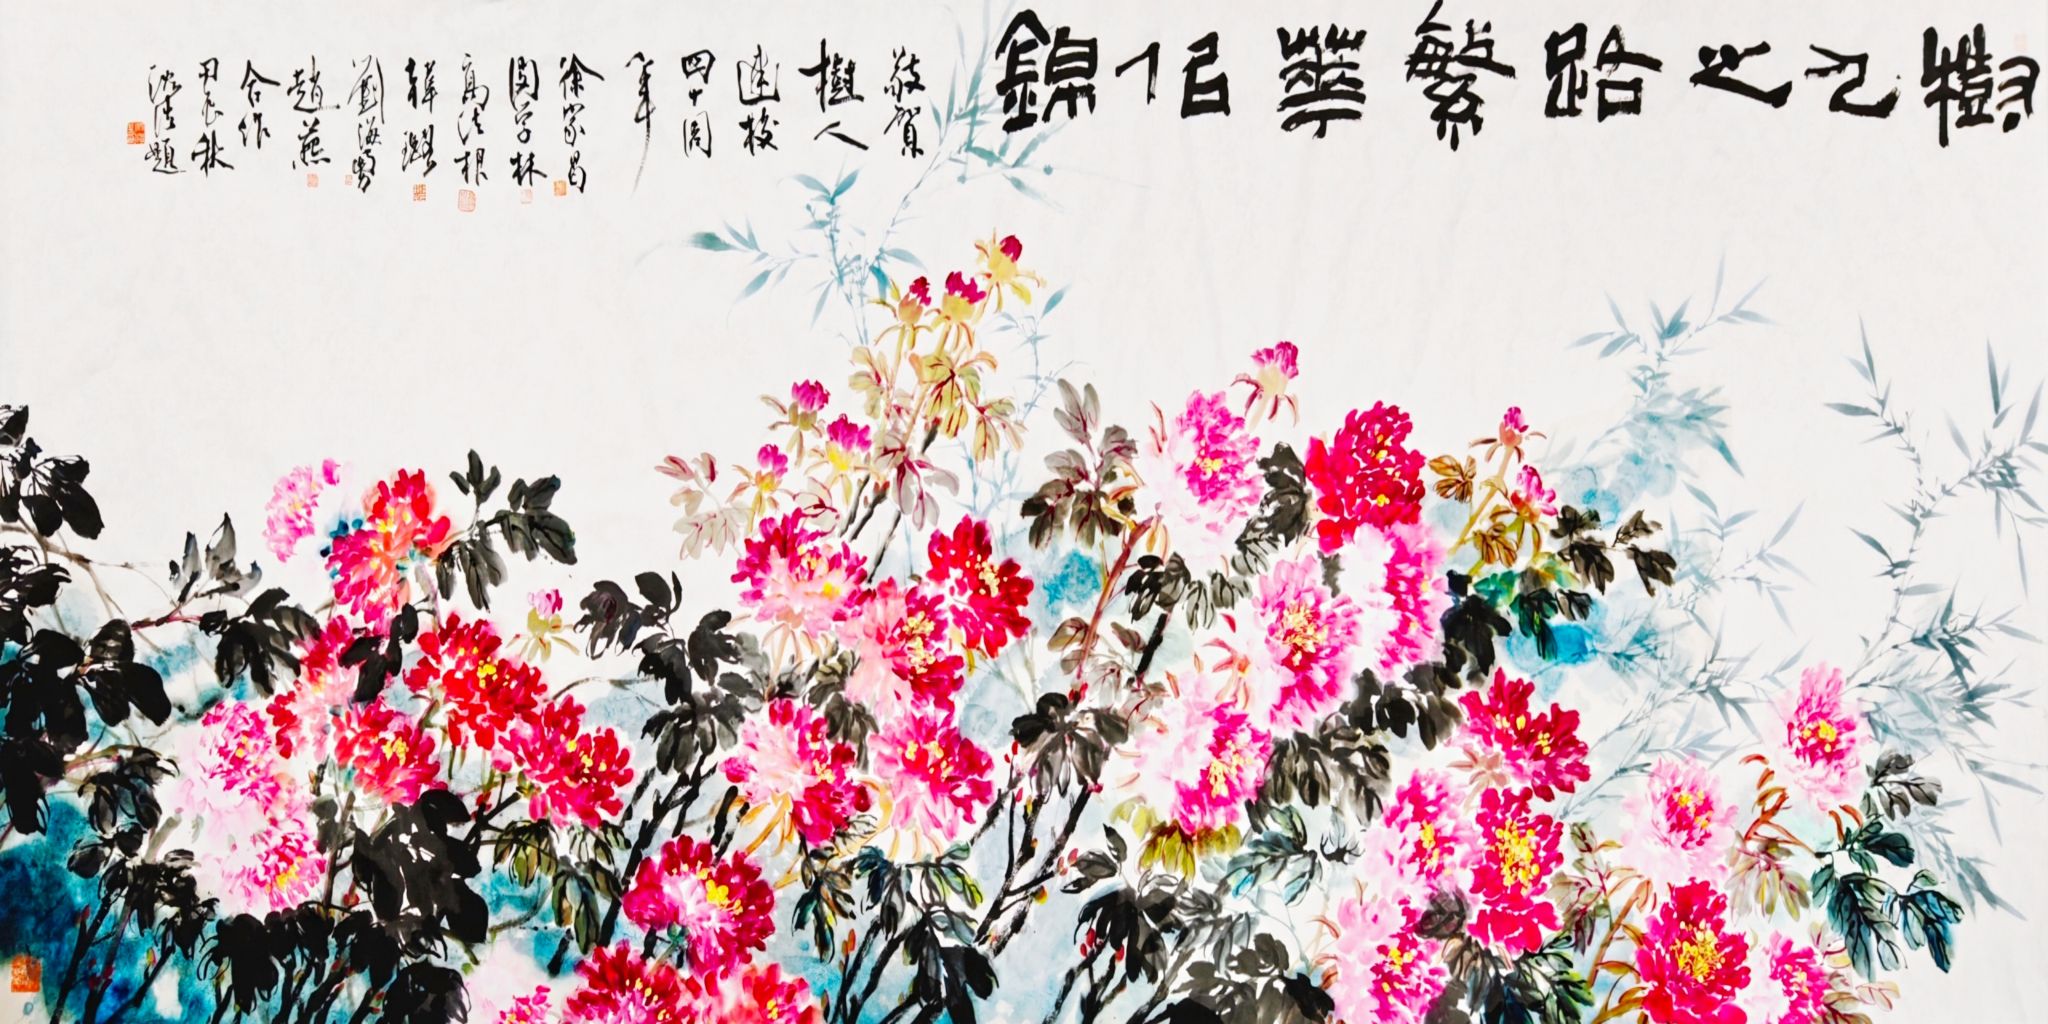 樹人之路繁華似錦
敬賀
樹人
建校
四十周
年
徐家昌
闵学林
高法根
韓璐
劉海勇
趙燕
合作
甲辰秋
法根題